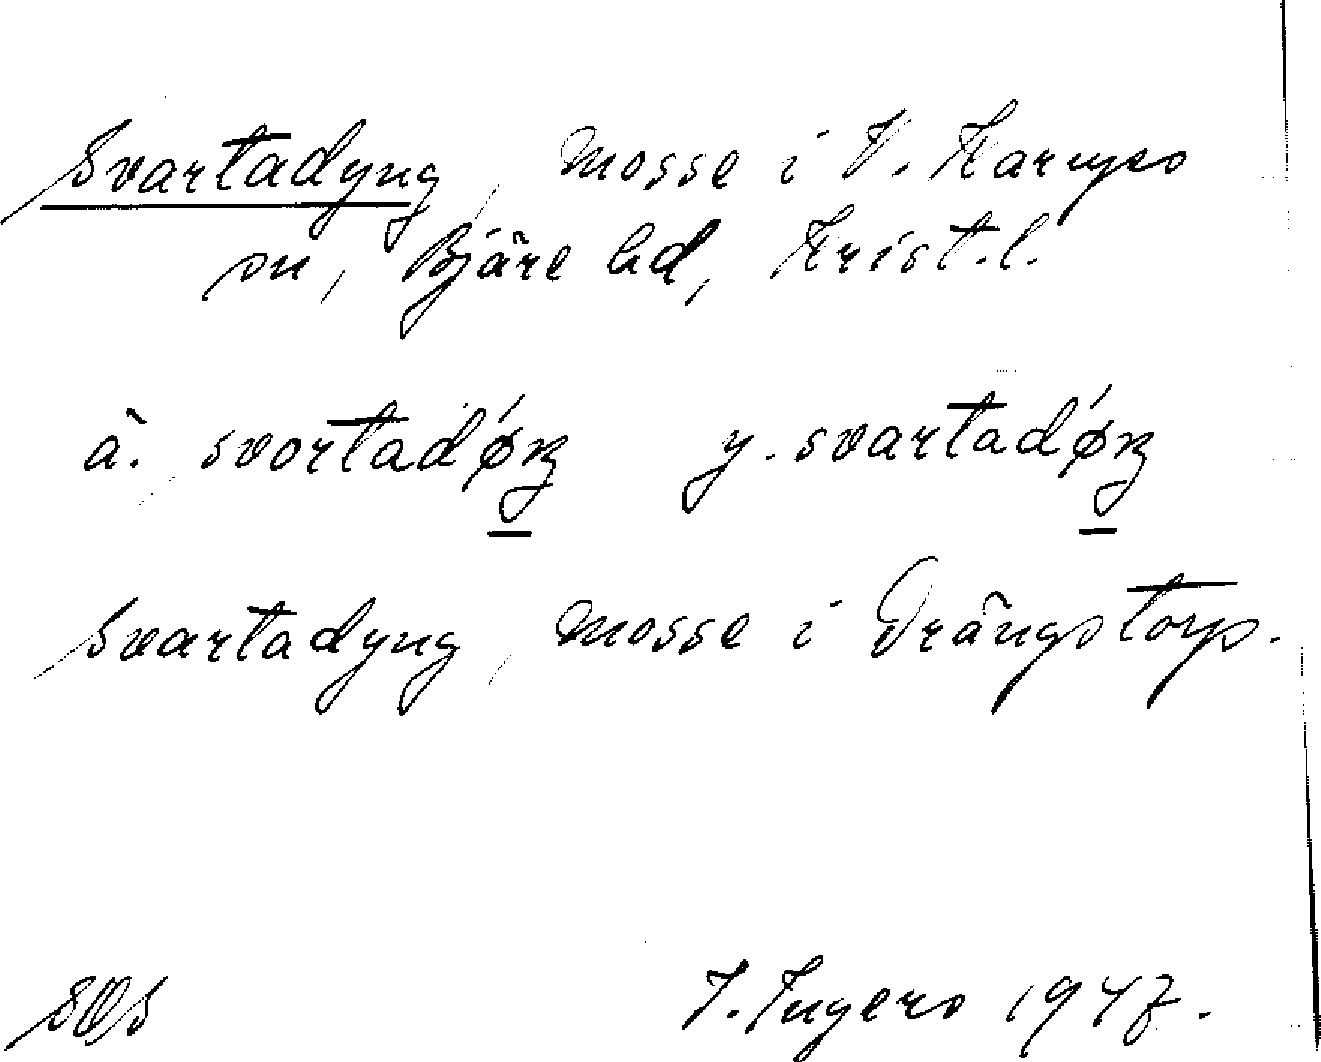 Svartadyng, mosse i V. Karups
sn, Bjäre hd, Krist.l.
ä. svortadǿŋ y. svartadǿŋ
Svartadyng, mosse i Drängstorp.
SOS
I. Ingers 1947.